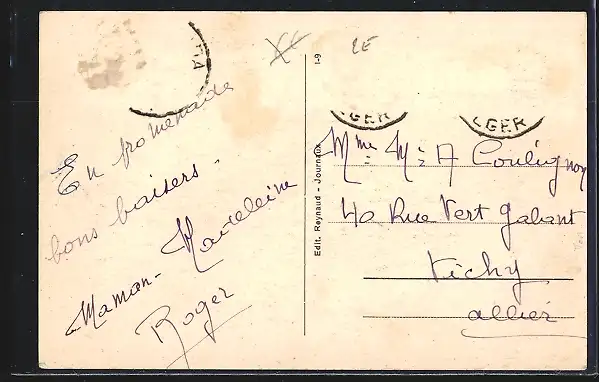 En promenade
bons baisers.
Maman - Madeleine
Roger
Edit. Reynaud - Journaux
I-9
LGER
LGER
Mme Mis A Coulignon
40 Rue Vert galant
Vichy
allier